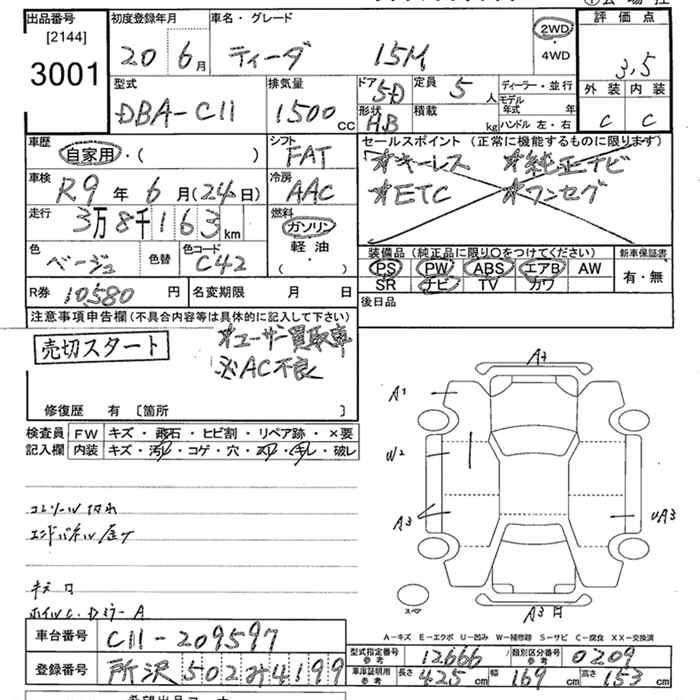 出品番号 初度登録年月 車名・グレード 評価点
[2144] 20 6月 ティーダ 15M 2WD・4WD 3,5
3001 型式 排気量 ドア 5D 定員 5人 ディーラー・並行 外装 内装
DBA-C11 1500cc 形状 H.B 積載 kg モデル年式 年 ハンドル 左・右 C C
車歴 自家用・( ) シフト FAT セールスポイント (正常に機能するものに限ります)
☆キーレス ☆純正ナビ
車検 R9年6月(24日) 冷房 AAC ☆ETC ☆ワンセグ
走行 3万8千163km 燃料 ガソリン 軽油 ( ・ )
色 ベージュ 色替 色コード C42 装備品 (純正品に限り〇をつけてください) 新車保証書
PS PW ABS エアB AW 有・無
SR ナビ TV カワ
R券 10580円 名変期限 月 日 後日品
注意事項申告欄 (不具合内容等は具体的に記入して下さい)
売切スタート ※ユーザー買取車
※AC不良
修復歴 有 [箇所 ]
検査員記入欄 FW キズ・飛石・ヒビ割・リペア跡・×要
内装 キズ・汚レ・コゲ・穴・スレ・キレ・破レ
A1
U2
A3
UA3
エンドパネル 歪
スペア
A-キズ E-エクボ U-凹み W-補修跡 S-サビ C-腐食 XX-交換済
車台番号 C11-209597
型式指定番号 参考 12666 類別区分番号 参考 0209
登録番号 所沢 502み4199 車庫証明用 参考 長さ 425cm 幅 169cm 高さ 153cm